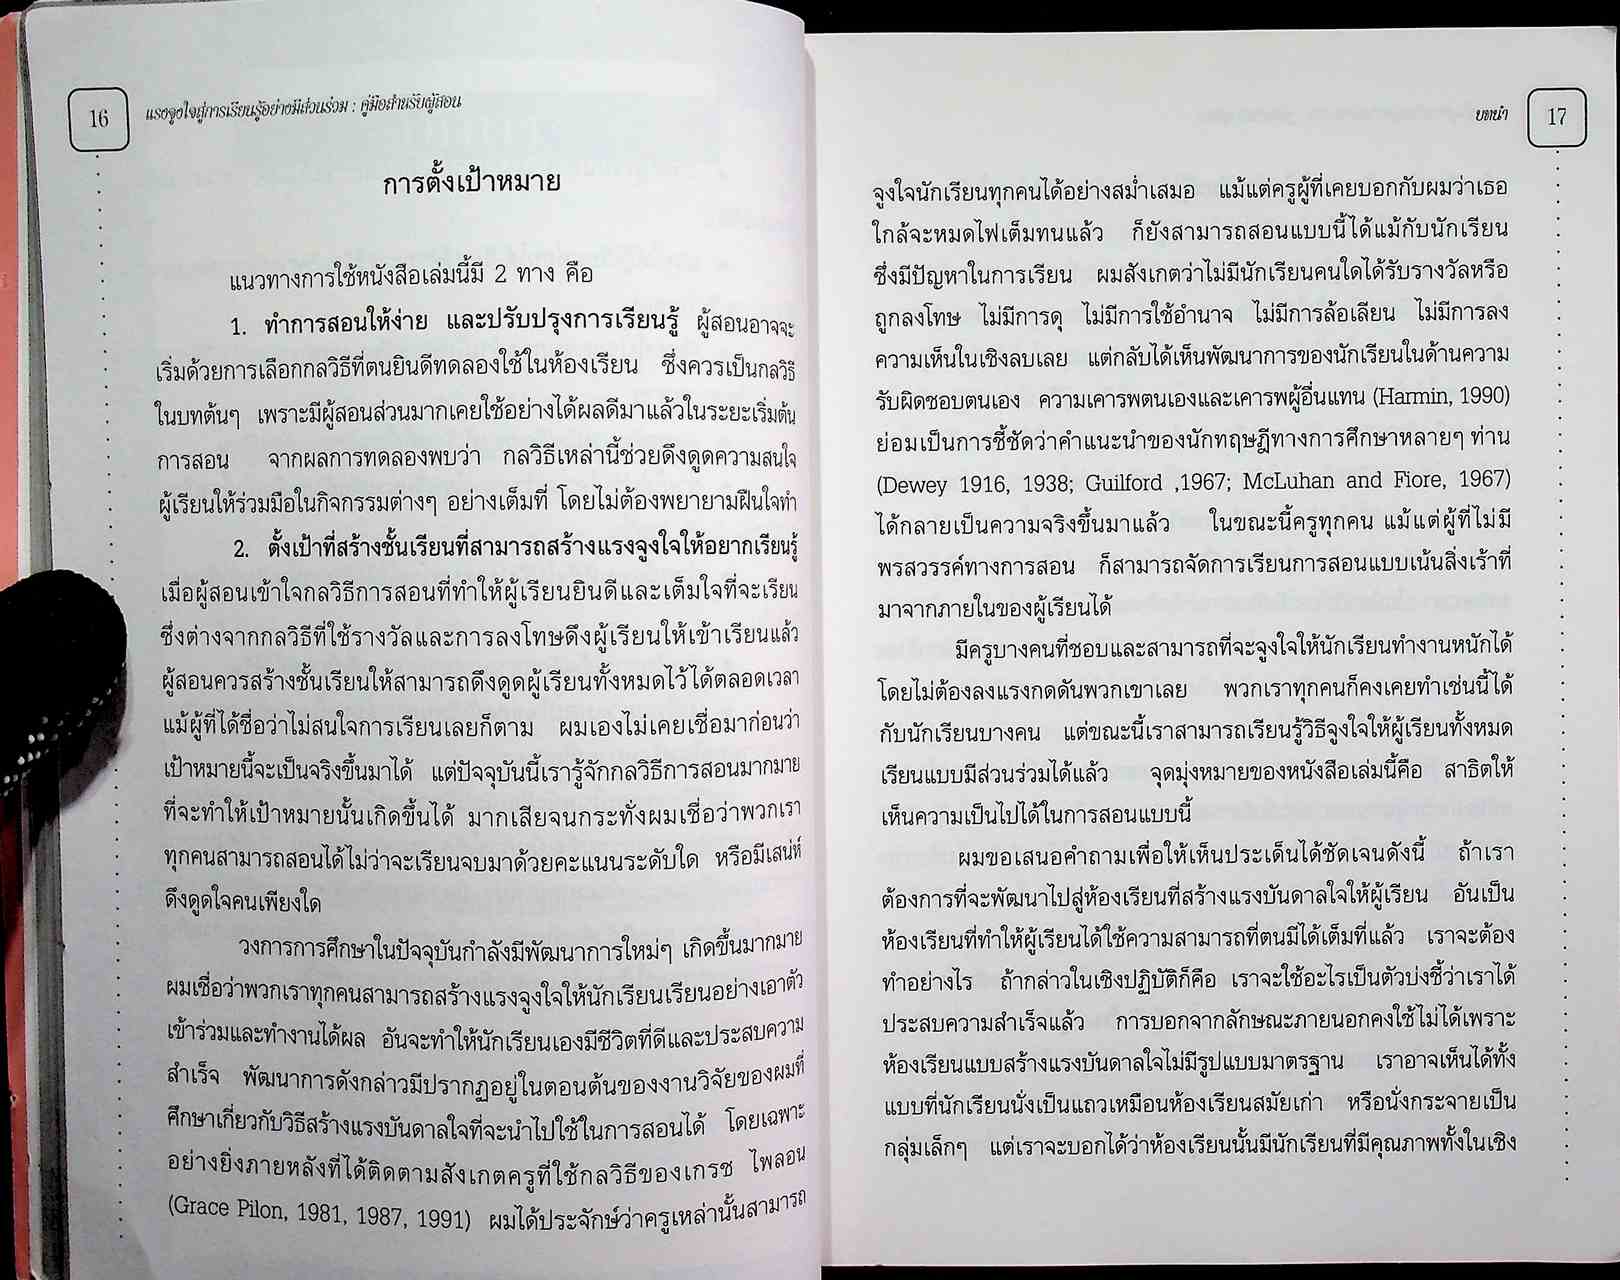 16
แรงจูงใจสู่การเรียนรู้อย่างมีส่วนร่วม : คู่มือสำหรับผู้สอน
การตั้งเป้าหมาย
แนวทางการใช้หนังสือเล่มนี้มี 2 ทาง คือ
1. ทำการสอนให้ง่าย และปรับปรุงการเรียนรู้ ผู้สอนอาจจะ
เริ่มด้วยการเลือกกลวิธีที่ตนยินดีทดลองใช้ในห้องเรียน ซึ่งควรเป็นกลวิธี
ในบทต้นๆ เพราะมีผู้สอนส่วนมากเคยใช้อย่างได้ผลดีมาแล้วในระยะเริ่มต้น
การสอน จากผลการทดลองพบว่า กลวิธีเหล่านี้ช่วยดึงดูดความสนใจ
ผู้เรียนให้ร่วมมือในกิจกรรมต่างๆ อย่างเต็มที่ โดยไม่ต้องพยายามฝืนใจทำ
2. ตั้งเป้าที่สร้างชั้นเรียนที่สามารถสร้างแรงจูงใจให้อยากเรียนรู้
เมื่อผู้สอนเข้าใจกลวิธีการสอนที่ทำให้ผู้เรียนยินดีและเต็มใจที่จะเรียน
ซึ่งต่างจากกลวิธีที่ใช้รางวัลและการลงโทษดึงผู้เรียนให้เข้าเรียนแล้ว
ผู้สอนควรสร้างชั้นเรียนให้สามารถดึงดูดผู้เรียนทั้งหมดไว้ได้ตลอดเวลา
แม้ผู้ที่ได้ชื่อว่าไม่สนใจการเรียนเลยก็ตาม ผมเองไม่เคยเชื่อมาก่อนว่า
เป้าหมายนี้จะเป็นจริงขึ้นมาได้ แต่ปัจจุบันนี้เรารู้จักกลวิธีการสอนมากมาย
ที่จะทำให้เป้าหมายนั้นเกิดขึ้นได้ มากเสียจนกระทั่งผมเชื่อว่าพวกเรา
ทุกคนสามารถสอนได้ไม่ว่าจะเรียนจบมาด้วยคะแนนระดับใด หรือมีเสน่ห์
ดึงดูดใจคนเพียงใด
วงการการศึกษาในปัจจุบันกำลังมีพัฒนาการใหม่ๆ เกิดขึ้นมากมาย
ผมเชื่อว่าพวกเราทุกคนสามารถสร้างแรงจูงใจให้นักเรียนเรียนอย่างเอาตัว
เข้าร่วมและทำงานได้ผล อันจะทำให้นักเรียนเองมีชีวิตที่ดีและประสบความ
สำเร็จ พัฒนาการดังกล่าวมีปรากฏอยู่ในตอนต้นของงานวิจัยของผมที่
ศึกษาเกี่ยวกับวิธีสร้างแรงบันดาลใจที่จะนำไปใช้ในการสอนได้ โดยเฉพาะ
อย่างยิ่งภายหลังที่ได้ติดตามสังเกตครูที่ใช้กลวิธีของเกรซ ไพลอน
(Grace Pilon, 1981, 1987, 1991) ผมได้ประจักษ์ว่าครูเหล่านั้นสามารถ
บทนำ
17
จูงใจนักเรียนทุกคนได้อย่างสม่ำเสมอ แม้แต่ครูผู้ที่เคยบอกกับผมว่าเธอ
ใกล้จะหมดไฟเต็มทนแล้ว ก็ยังสามารถสอนแบบนี้ได้แม้กับนักเรียน
ซึ่งมีปัญหาในการเรียน ผมสังเกตว่าไม่มีนักเรียนคนใดได้รับรางวัลหรือ
ถูกลงโทษ ไม่มีการดุ ไม่มีการใช้อำนาจ ไม่มีการล้อเลียน ไม่มีการลง
ความเห็นในเชิงลบเลย แต่กลับได้เห็นพัฒนาการของนักเรียนในด้านความ
รับผิดชอบตนเอง ความเคารพตนเองและเคารพผู้อื่นแทน (Harmin, 1990)
ย่อมเป็นการชี้ชัดว่าคำแนะนำของนักทฤษฎีทางการศึกษาหลายๆ ท่าน
(Dewey 1916, 1938; Guilford ,1967; McLuhan and Fiore, 1967)
ได้กลายเป็นความจริงขึ้นมาแล้ว ในขณะนี้ครูทุกคน แม้แต่ผู้ที่ไม่มี
พรสวรรค์ทางการสอน ก็สามารถจัดการเรียนการสอนแบบเน้นสิ่งเร้าที่
มาจากภายในของผู้เรียนได้
มีครูบางคนที่ชอบและสามารถที่จะจูงใจให้นักเรียนทำงานหนักได้
โดยไม่ต้องลงแรงกดดันพวกเขาเลย พวกเราทุกคนก็คงเคยทำเช่นนี้ได้
กับนักเรียนบางคน แต่ขณะนี้เราสามารถเรียนรู้วิธีจูงใจให้ผู้เรียนทั้งหมด
เรียนแบบมีส่วนร่วมได้แล้ว จุดมุ่งหมายของหนังสือเล่มนี้คือ สาธิตให้
เห็นความเป็นไปได้ในการสอนแบบนี้
ผมขอเสนอคำถามเพื่อให้เห็นประเด็นได้ชัดเจนดังนี้ ถ้าเรา
ต้องการที่จะพัฒนาไปสู่ห้องเรียนที่สร้างแรงบันดาลใจให้ผู้เรียน อันเป็น
ห้องเรียนที่ทำให้ผู้เรียนได้ใช้ความสามารถที่ตนมีได้เต็มที่แล้ว เราจะต้อง
ทำอย่างไร ถ้ากล่าวในเชิงปฏิบัติก็คือ เราจะใช้อะไรเป็นตัวบ่งชี้ว่าเราได้
ประสบความสำเร็จแล้ว การบอกจากลักษณะภายนอกคงใช้ไม่ได้เพราะ
ห้องเรียนแบบสร้างแรงบันดาลใจไม่มีรูปแบบมาตรฐาน เราอาจเห็นได้ทั้ง
แบบที่นักเรียนนั่งเป็นแถวเหมือนห้องเรียนสมัยเก่า หรือนั่งกระจายเป็น
กลุ่มเล็กๆ แต่เราจะบอกได้ว่าห้องเรียนนั้นมีนักเรียนที่มีคุณภาพทั้งในเชิง